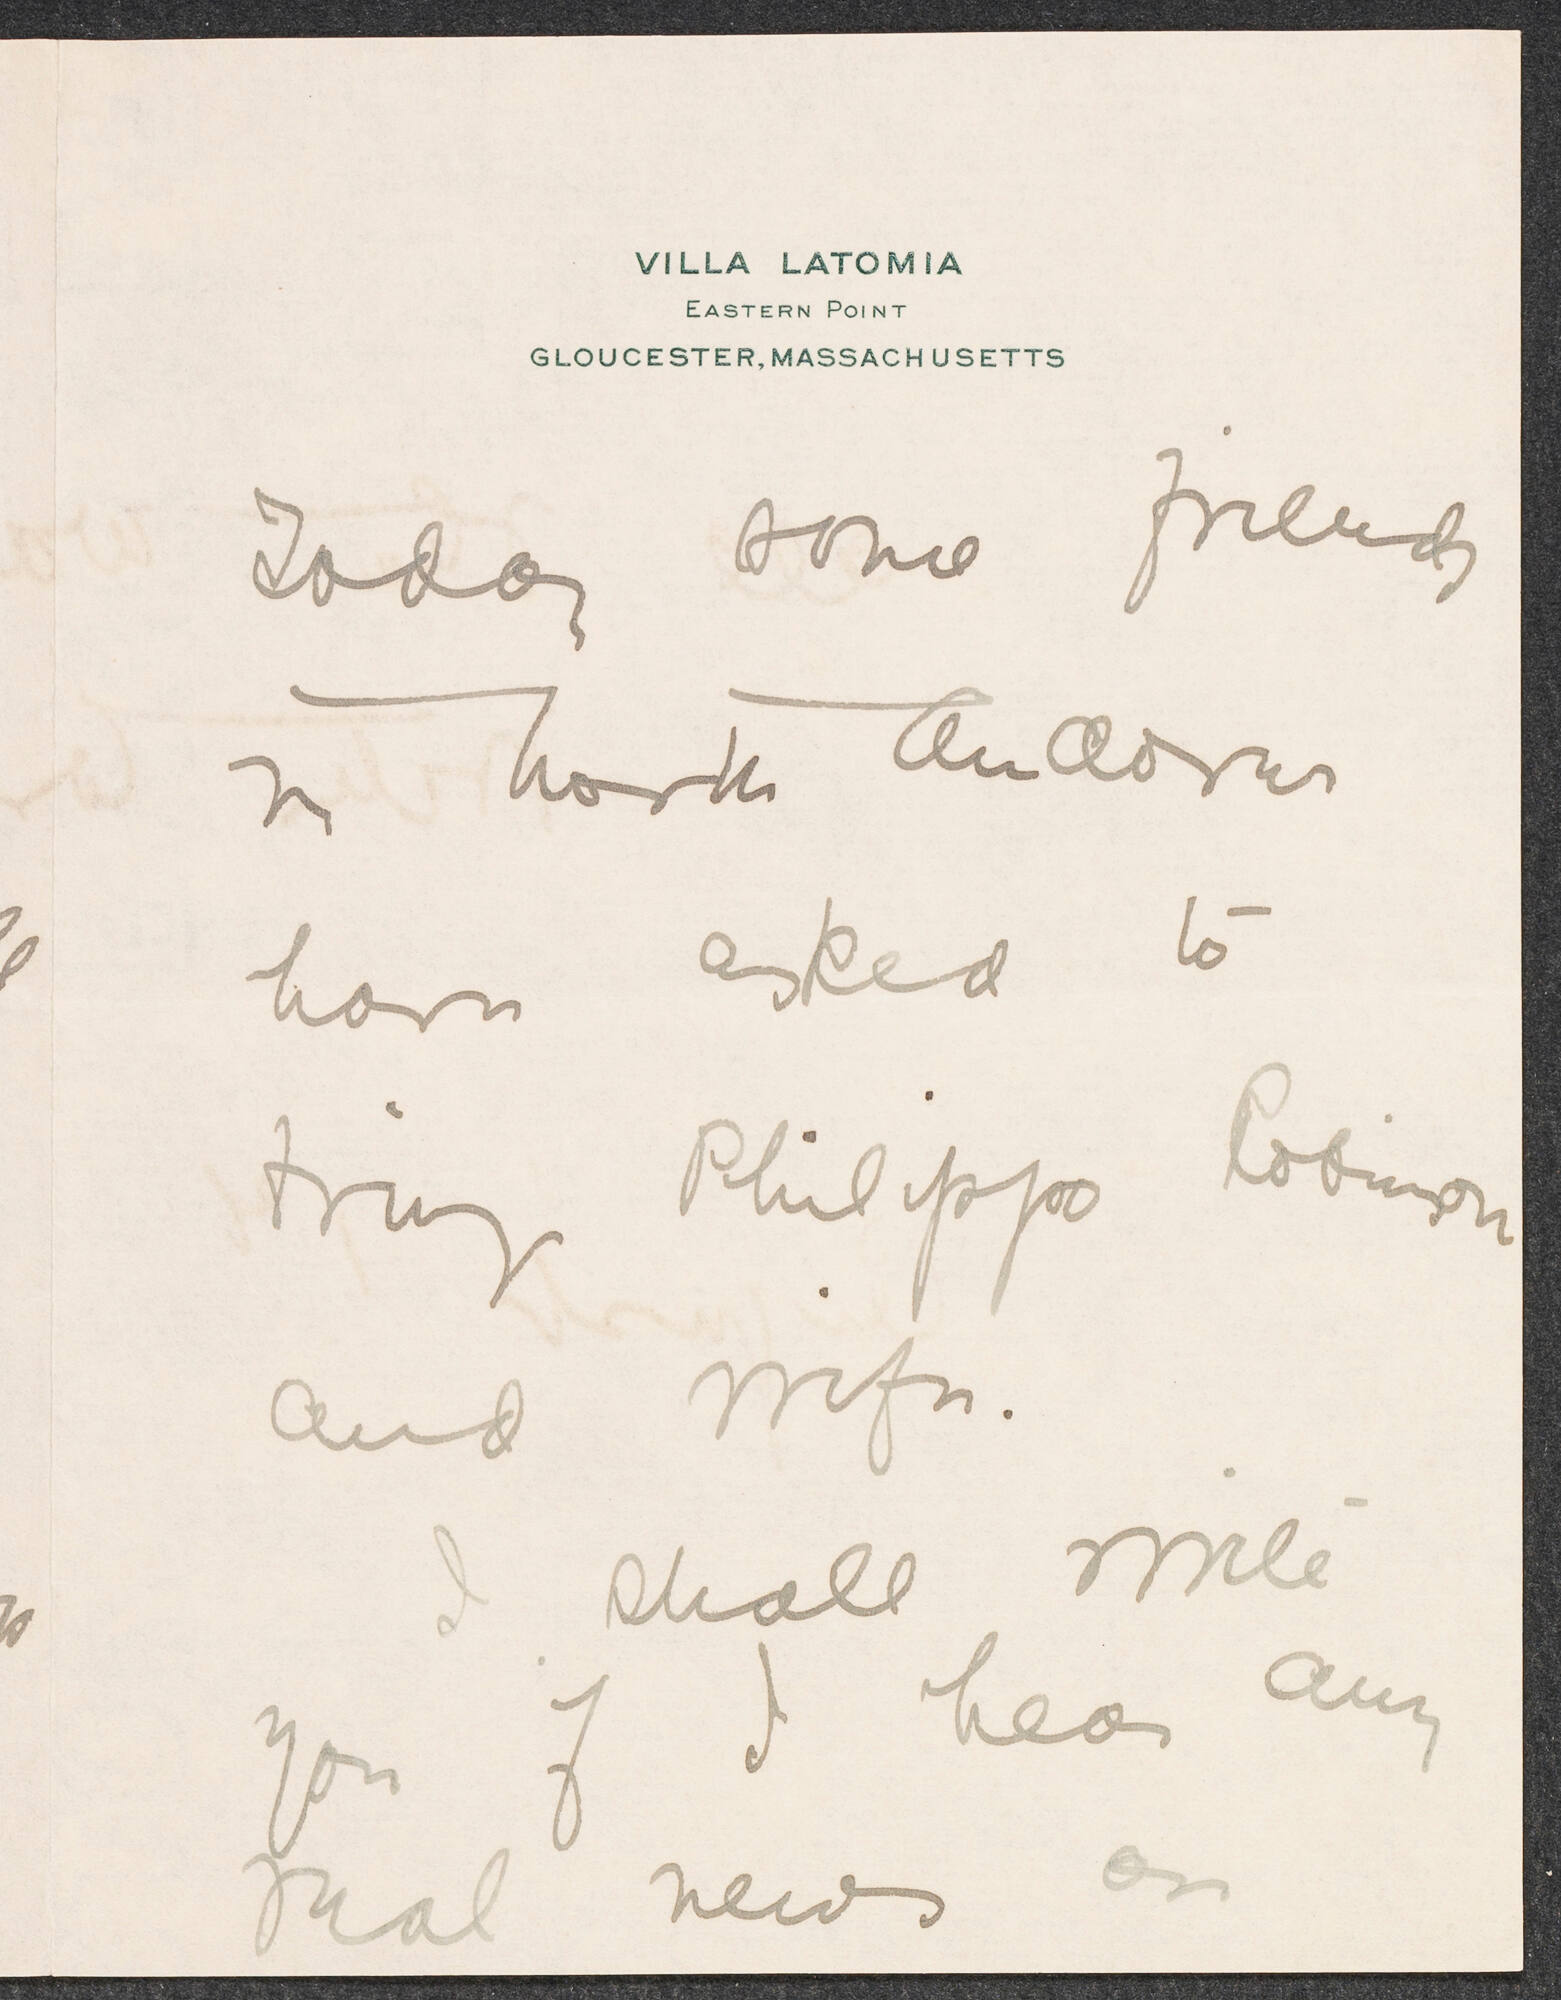 VILLA LATOMIA
EASTERN POINT
GLOUCESTER, MASSACHUSETTS
Today some friends
in North Andover
have asked to
bring Philippo Robinson
and wife.
I shall write
you if I hear any
real news or